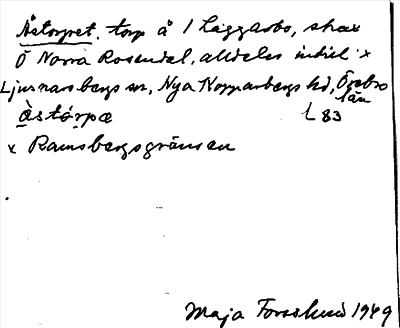 Åstorpet. torp å 1 Läggarbo, strax
Ö Norra Rosendal, alldeles intill x
Ljusnarsbergs sn, Nya Kopparbergs hd, Örebro
län
àstórpæ L 83
x Ramsbergsgränsen
Maja Forsslund 1949